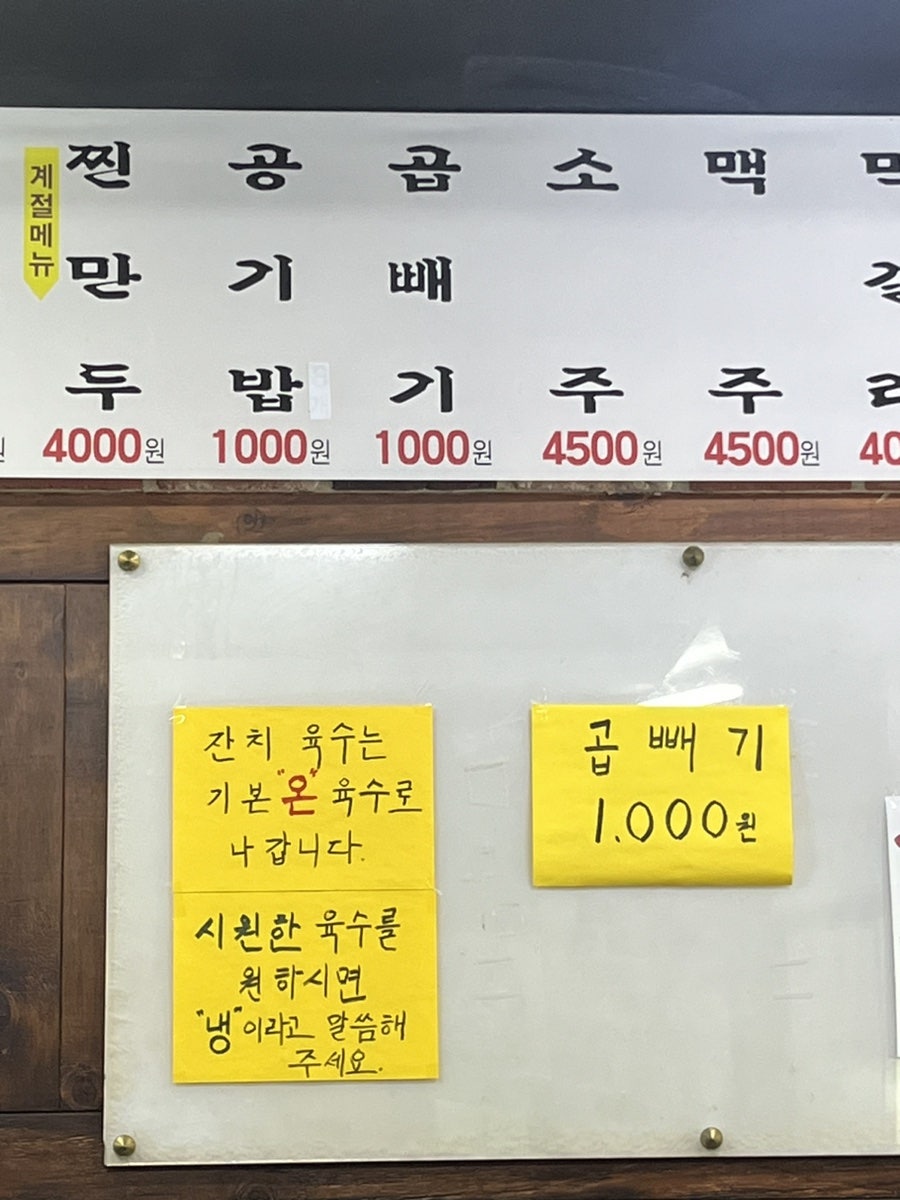 계절메뉴
찐만두
4000원
공기밥
1000원
곱빼기
1000원
소주
4500원
맥주
4500원
잔치 육수는
기본 "온" 육수로
나갑니다.
시원한 육수를
원하시면
"냉"이라고 말씀해
주세요.
곱빼기
1.000원